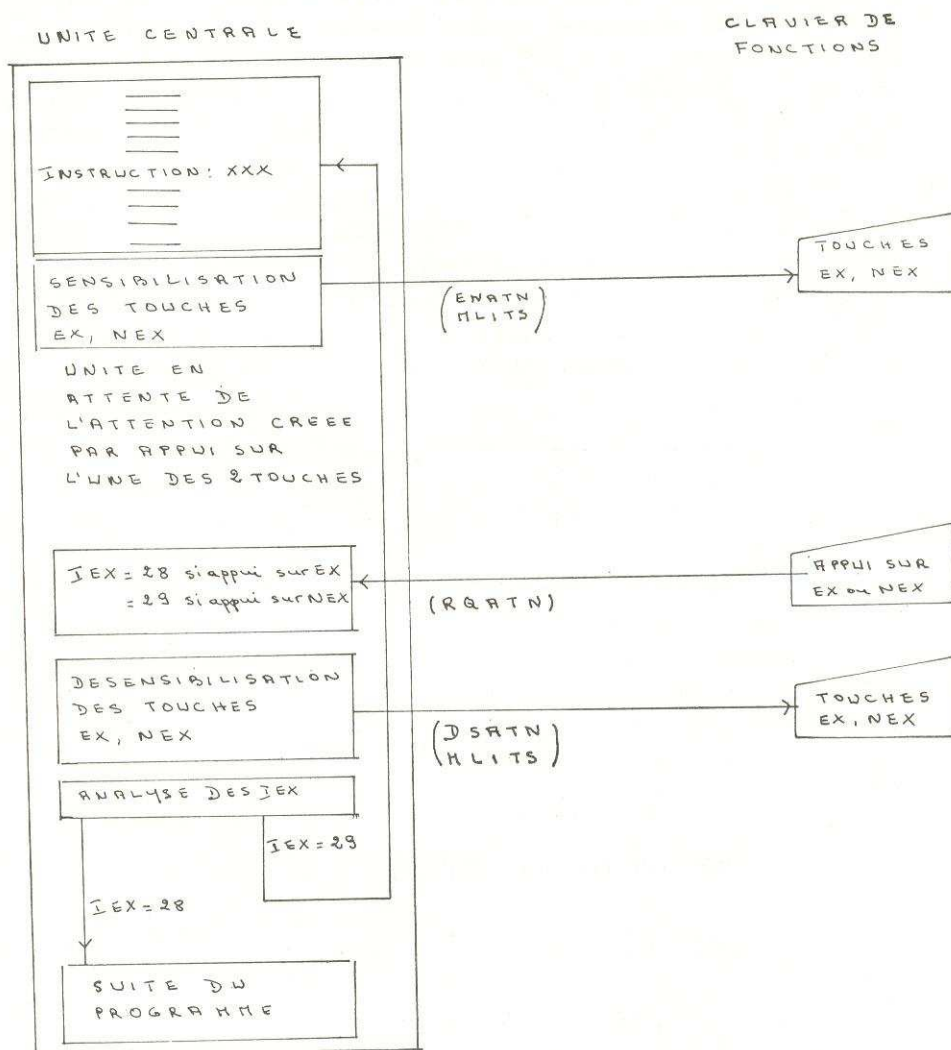 UNITE CENTRALE
CLAVIER DE
FONCTIONS
INSTRUCTION: XXX
SENSIBILISATION
DES TOUCHES
EX, NEX
(ENATN
MLITS)
TOUCHES
EX, NEX
UNITE EN
ATTENTE DE
L'ATTENTION CREEE
PAR APPUI SUR
L'UNE DES 2 TOUCHES
IEX = 28 si appui sur EX
= 29 si appui sur NEX
(RQATN)
APPUI SUR
EX ou NEX
DESENSIBILISATION
DES TOUCHES
EX, NEX
(DSATN
MLITS)
TOUCHES
EX, NEX
ANALYSE DES IEX
IEX = 29
IEX = 28
SUITE DU
PROGRAMME